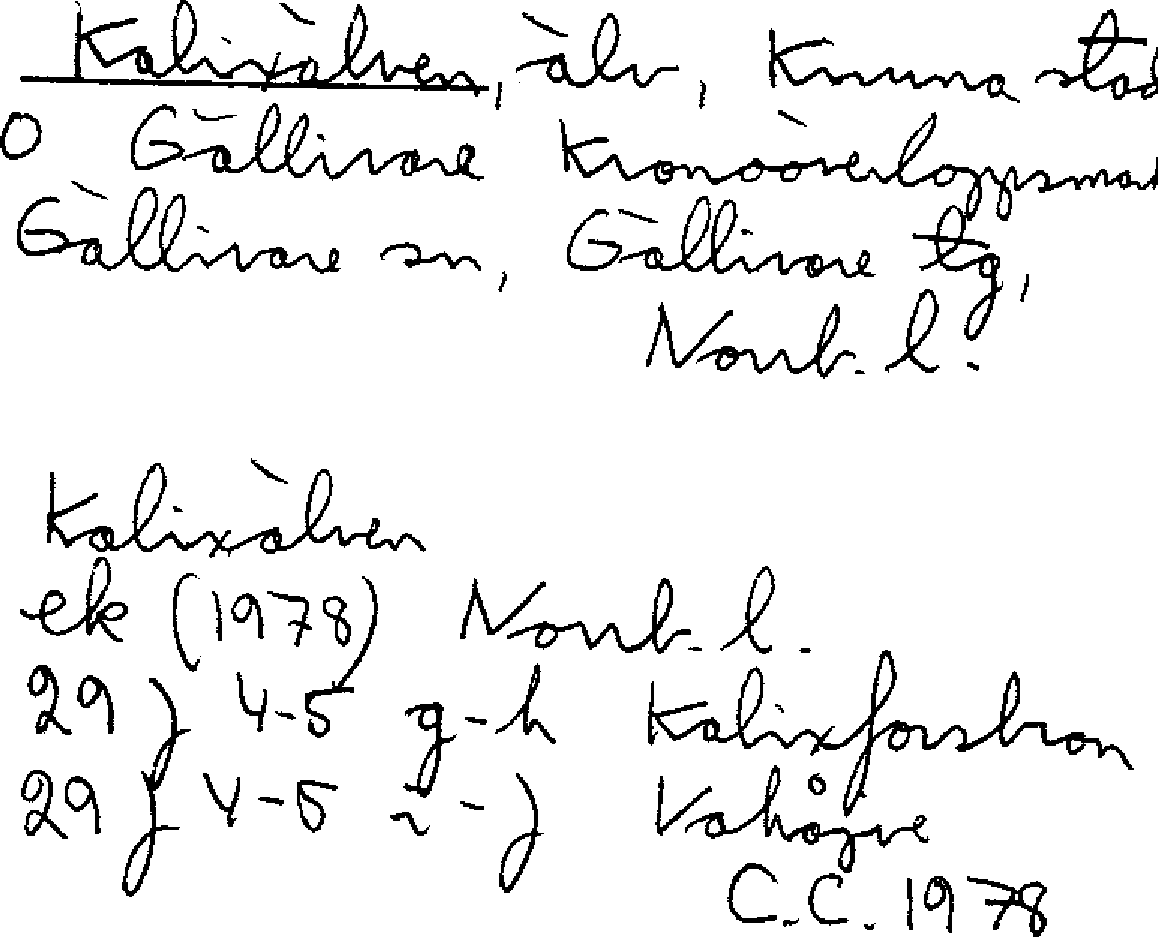 Kalixälven, älv, Kiruna stad
o Gällivare Kronoöverloppsmar
Gällivare sn, Gällivare tg,
Norrb. l.
Kalixälven
ek (1978) Norrb. l.
29 J 4-5 g-h Kalixforsbron
29 J 4-5 i-j Vahåive
C.C. 1978